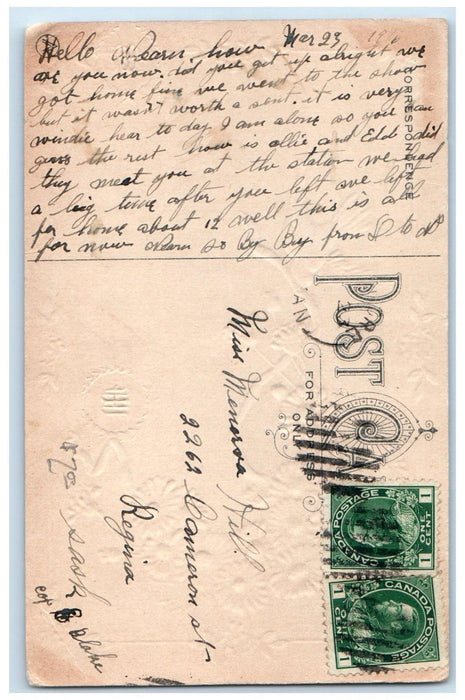 Mar 23 191
Hello Dearn how
are you now. did you get up alright we
got home fine we went to the show
but it wasn't worth a sent. it is very
windie hear to day I am alone so you can
guess the rest how is allie and Edd did
they meet you at the station we had
a big time after you left we left
for home about 12 well this is all
for now Dearn so By Buy from D to N
CORRESPONDENCE
POST CA
AN
FOR ADDRESS
ON
Miss Menorva Hill
2262 Cameron st
Regina
Sask
CANADA POSTAGE
1 ONE CENT 1
CANADA POSTAGE
1 ONE CENT